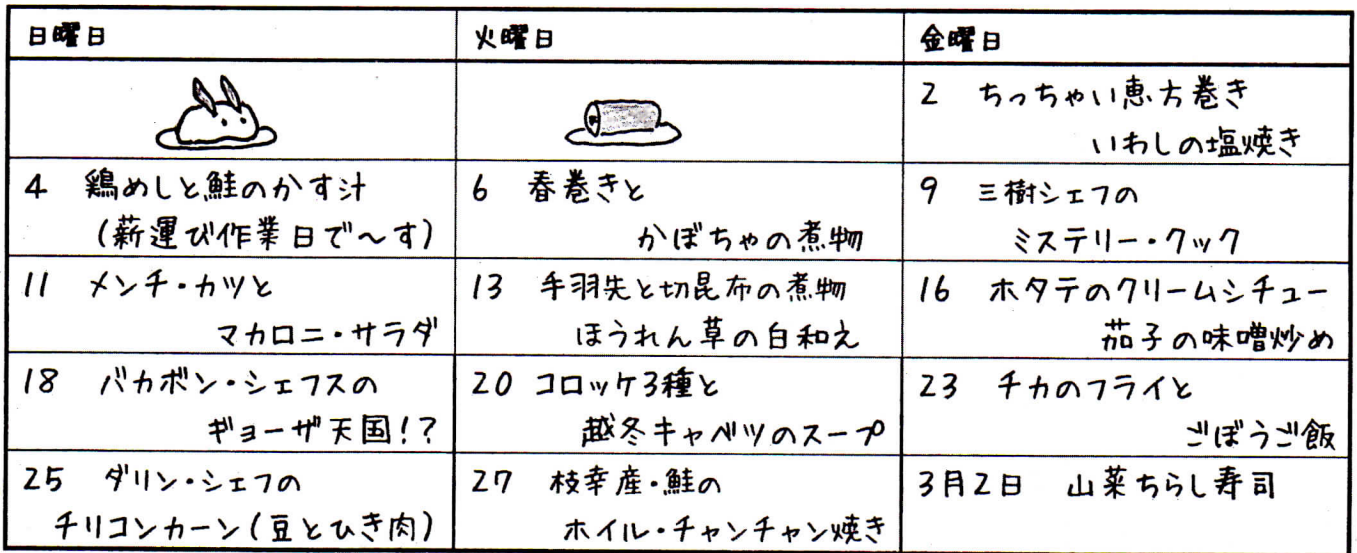 日曜日
火曜日
金曜日
2 ちっちゃい恵方巻き
いわしの塩焼き
4 鶏めしと鮭のかす汁
(薪運び作業日で〜す)
6 春巻きと
かぼちゃの煮物
9 三樹シェフの
ミステリー・クック
11 メンチ・カツと
マカロニ・サラダ
13 手羽先と切昆布の煮物
ほうれん草の白和え
16 ホタテのクリームシチュー
茄子の味噌炒め
18 バカボン・シェフスの
ギョーザ天国!?
20 コロッケ3種と
越冬キャベツのスープ
23 チカのフライと
ごぼうご飯
25 ダリン・シェフの
チリコンカーン(豆とひき肉)
27 枝幸産・鮭の
ホイル・チャンチャン焼き
3月2日 山菜ちらし寿司